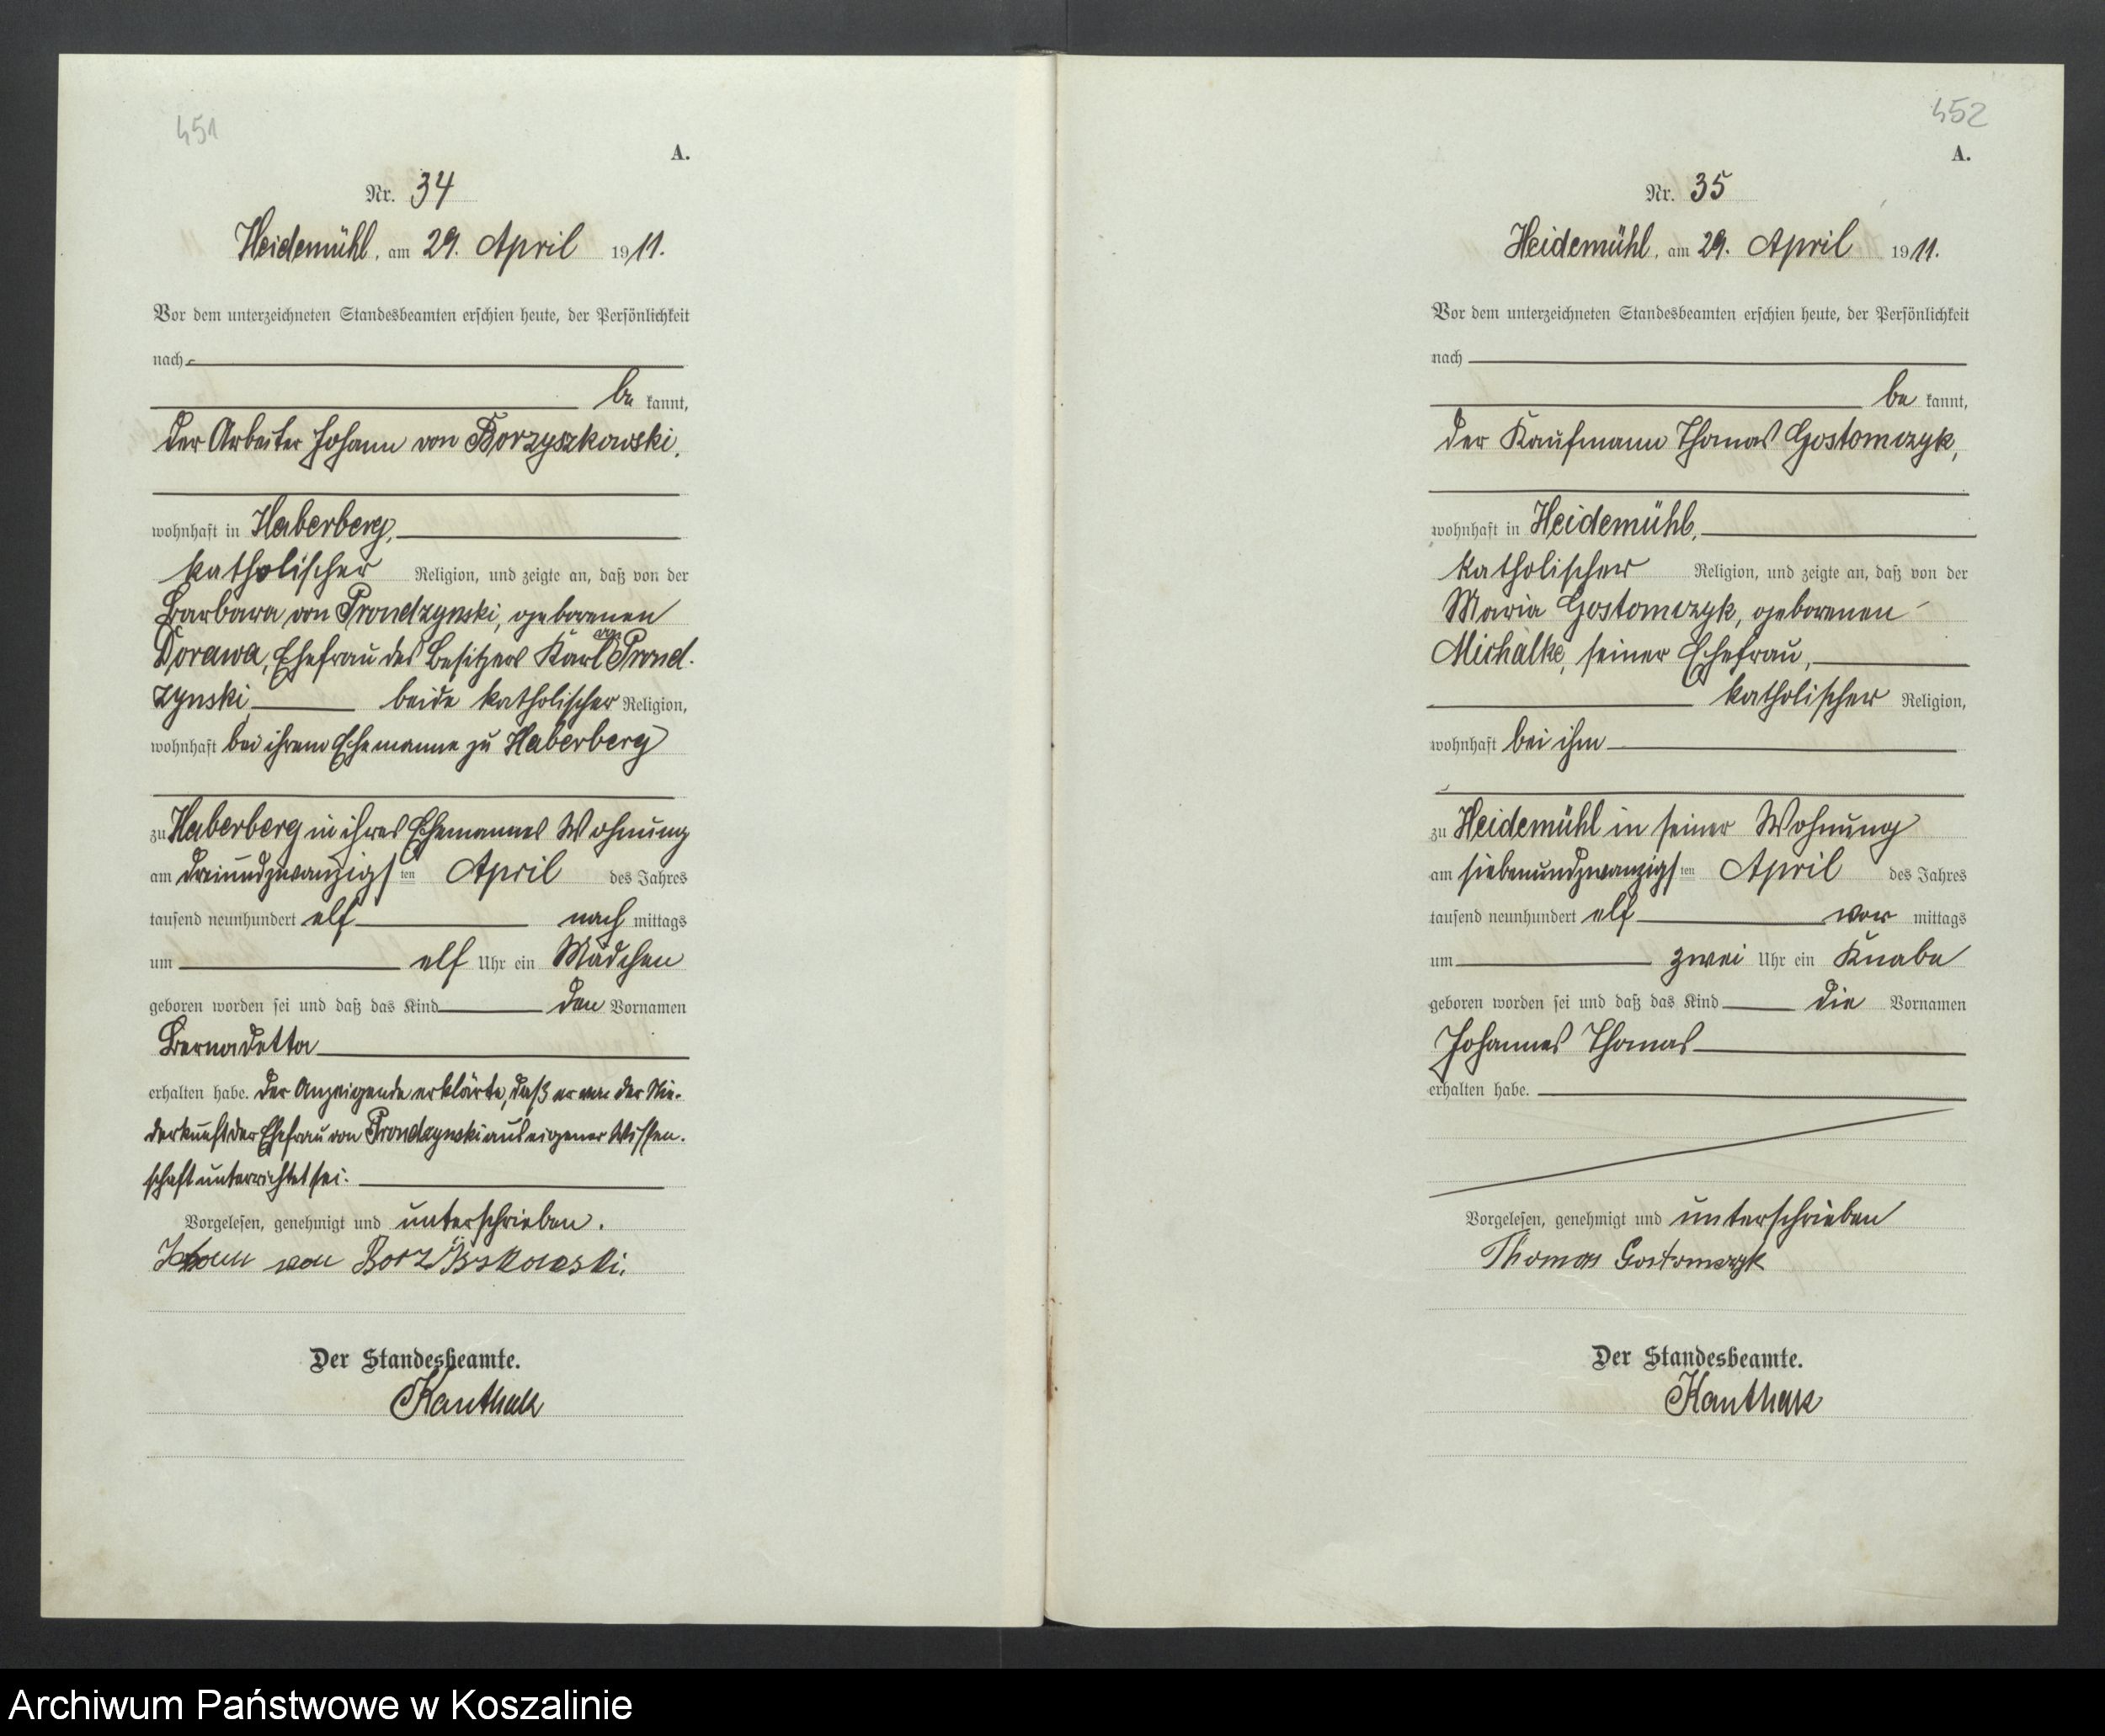 451
A.
Nr. 34
Heidemühl, am 29. April 1911.
Vor dem unterzeichneten Standesbeamten erschien heute, der Persönlichkeit
nach
be kannt,
der Arbeiter Johann von Borzyszkowski,
wohnhaft in Haberberg,
katholischer Religion, und zeigte an, daß von der
Barbara von Prondzynski, geborenen
Dorawa, Ehefrau des Besitzers Karl von Prond-
zynski beide katholischer Religion,
wohnhaft bei ihrem Ehemanne zu Haberberg
zu Haberberg in ihres Ehemannes Wohnung
am dreiundzwanzigsten April des Jahres
tausend neunhundert elf nach mittags
um elf Uhr ein Mädchen
geboren worden sei und daß das Kind den Vornamen
Bernadetta
erhalten habe. Der Anzeigende erklärte, daß er von der Nie-
derkunft der Ehefrau von Prondzynski aus eigener Wissen-
schaft unterrichtet sei.
Vorgelesen, genehmigt und unterschrieben.
Johann von Borzÿskowski.
Der Standesbeamte.
Kanthak
452
A.
Nr. 35
Heidemühl, am 29. April 1911.
Vor dem unterzeichneten Standesbeamten erschien heute, der Persönlichkeit
nach
be kannt,
der Kaufmann Thomas Gostomczyk,
wohnhaft in Heidemühl,
katholischer Religion, und zeigte an, daß von der
Maria Gostomczyk, geborenen
Michalke, seiner Ehefrau,
katholischer Religion,
wohnhaft bei ihm
zu Heidemühl in seiner Wohnung
am siebenundzwanzigsten April des Jahres
tausend neunhundert elf vor mittags
um zwei Uhr ein Knabe
geboren worden sei und daß das Kind die Vornamen
Johannes Thomas
erhalten habe.
Vorgelesen, genehmigt und unterschrieben
Thomas Gostomczyk
Der Standesbeamte.
Kanthak
Archiwum Państwowe w Koszalinie